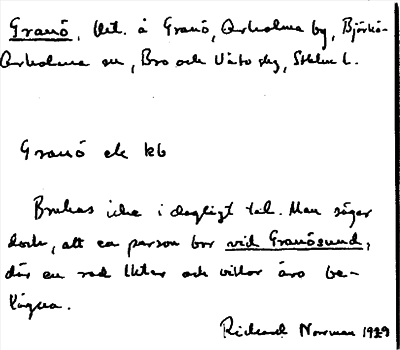 Granö, lht. å Granö, Arholma by, Björkö-
Arholma sn, Bro och Vätö skg, Sthlms l.
Granö ek kb
Brukas icke i dagligt tal. Man säger
dock, att en person bor vid Granösund,
där en rad lhter och villor äro be-
lägna.
Rickard Norman 1929